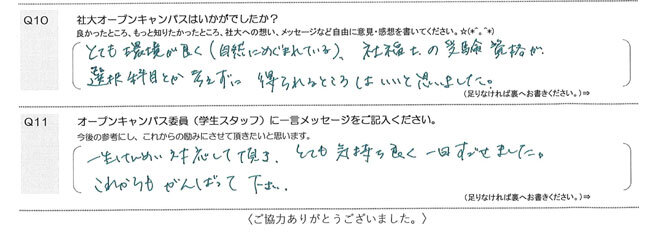 Q10
社大オープンキャンパスはいかがでしたか？
良かったところ、もっと知りたかったところ、社大への想い、メッセージなど自由に意見・感想を書いてください。☆(*^。^*)
とても環境が良く(自然にめぐまれている)、社福士の受験資格が
選択科目とか考えずに得られるところはいいと思いました。
(足りなければ裏へお書きください。)⇒
Q11
オープンキャンパス委員（学生スタッフ）に一言メッセージをご記入ください。
今後の参考にし、これからの励みにさせて頂きたいと思います。
一生けんめい対応して頂き、とても気持ち良く一日すごせました。
これからもがんばって下さい。
(足りなければ裏へお書きください。)⇒
〈ご協力ありがとうございました。〉